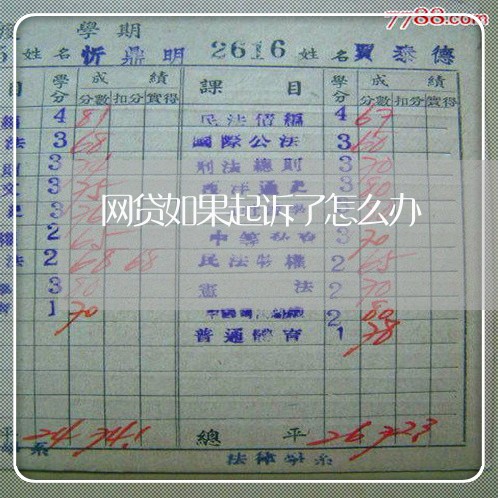 7788.com
學期
姓名 忻鼎明 2616 姓名 賈泰德
目 學分 成績 課目 學分 成績
分數 扣分 實得 分數 扣分 實得
4 81 民法債編 4 67
法 3 68 國際公法 3 60
3 刑法總則 3 70
3 75 西洋通史 3 80
网贷如果起诉了怎么办
2 65 中等 3 70
法 2 68 68 民法物權 2 65
3 80 憲法 2 70
1 70 2 80
普通體育 1 78
平 24 74.1 總平 26 72.3
系 法律學系